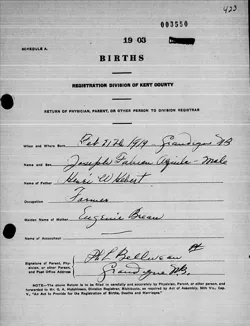 423
003550
SCHEDULE A.
1903
BIRTHS
REGISTRATION DIVISION OF KENT COUNTY
RETURN OF PHYSICIAN, PARENT, OR OTHER PERSON TO DIVISION REGISTRAR
When and Where Born, Feb 21th 1919 Grandigue NB
Name and Sex, Joseph Fabien Male
Name of Father Henri W Hebert
Occupation Farmer
Maiden Name of Mother Eugenie Breau
Name of Accoucheur
Signature of Parent, Physician, or other Person, and Post Office Address
Grandigue NB.
NOTE.—The above Return is to be filled in carefully and accurately by Physician, Parent, or other person, and forwarded to
Division Registrar, as required by Act of Assembly,
V, "An Act to Provide for the Registration of Births, Deaths and Marriages."